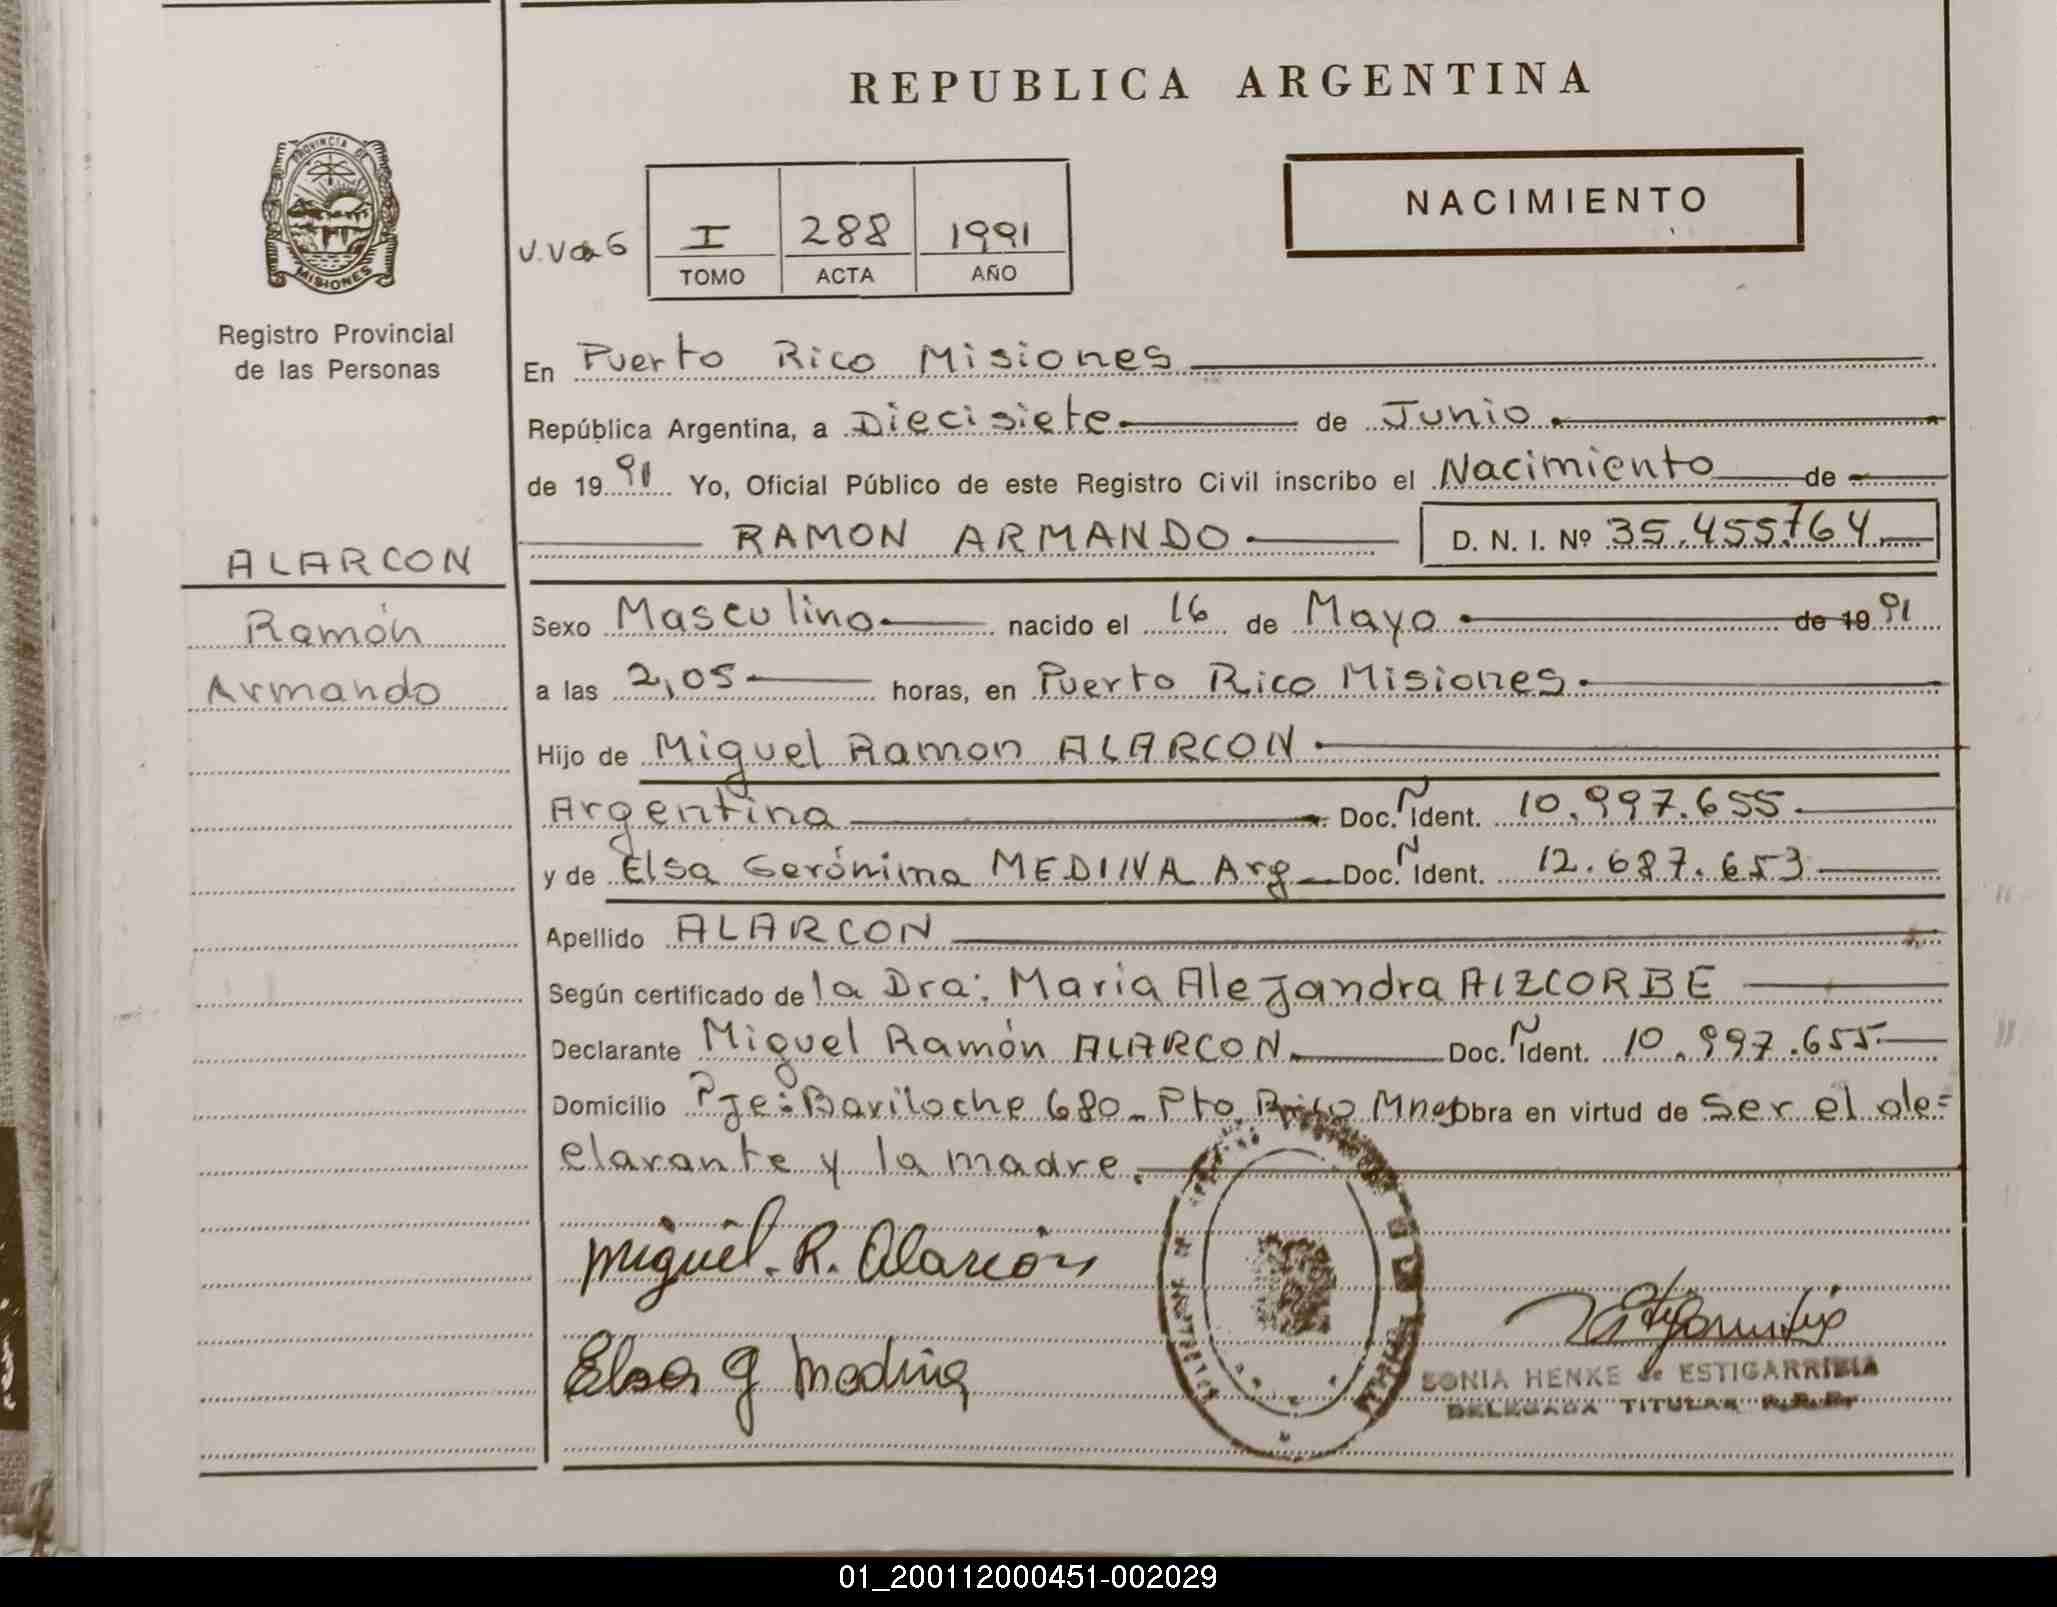 REPUBLICA ARGENTINA
PROVINCIA DE
MISIONES
Registro Provincial
de las Personas
NACIMIENTO
I 288 1991
TOMO ACTA AÑO
En Puerto Rico Misiones
República Argentina, a Diecisiete de Junio
de 19 91 Yo, Oficial Público de este Registro Civil inscribo el Nacimiento de
RAMON ARMANDO D. N. I. Nº 35.455.764
ALARCON
Ramón
Armando
Sexo Masculino nacido el 16 de Mayo de 19 91
a las 2,05 horas, en Puerto Rico Misiones
Hijo de Miguel Ramon ALARCON
Argentina Doc. Ñ Ident. 10.997.655
y de Elsa Gerónima MEDINA Arg Doc. Ñ Ident. 12.687.653
Apellido ALARCON
Según certificado de la Dra: Maria Alejandra AIZCORBE
Declarante Miguel Ramón ALARCON Doc. Ñ Ident. 10.997.655
Domicilio Pje: Bariloche 680 - Pto Rico Mnes Obra en virtud de Ser el de=
clarante y la madre.
Miguel. R. Alarcón
Elsa G Medina
SONIA HENKE de ESTIGARRIBIA
DELEGADA TITULAR R.P.P.
01_200112000451-002029